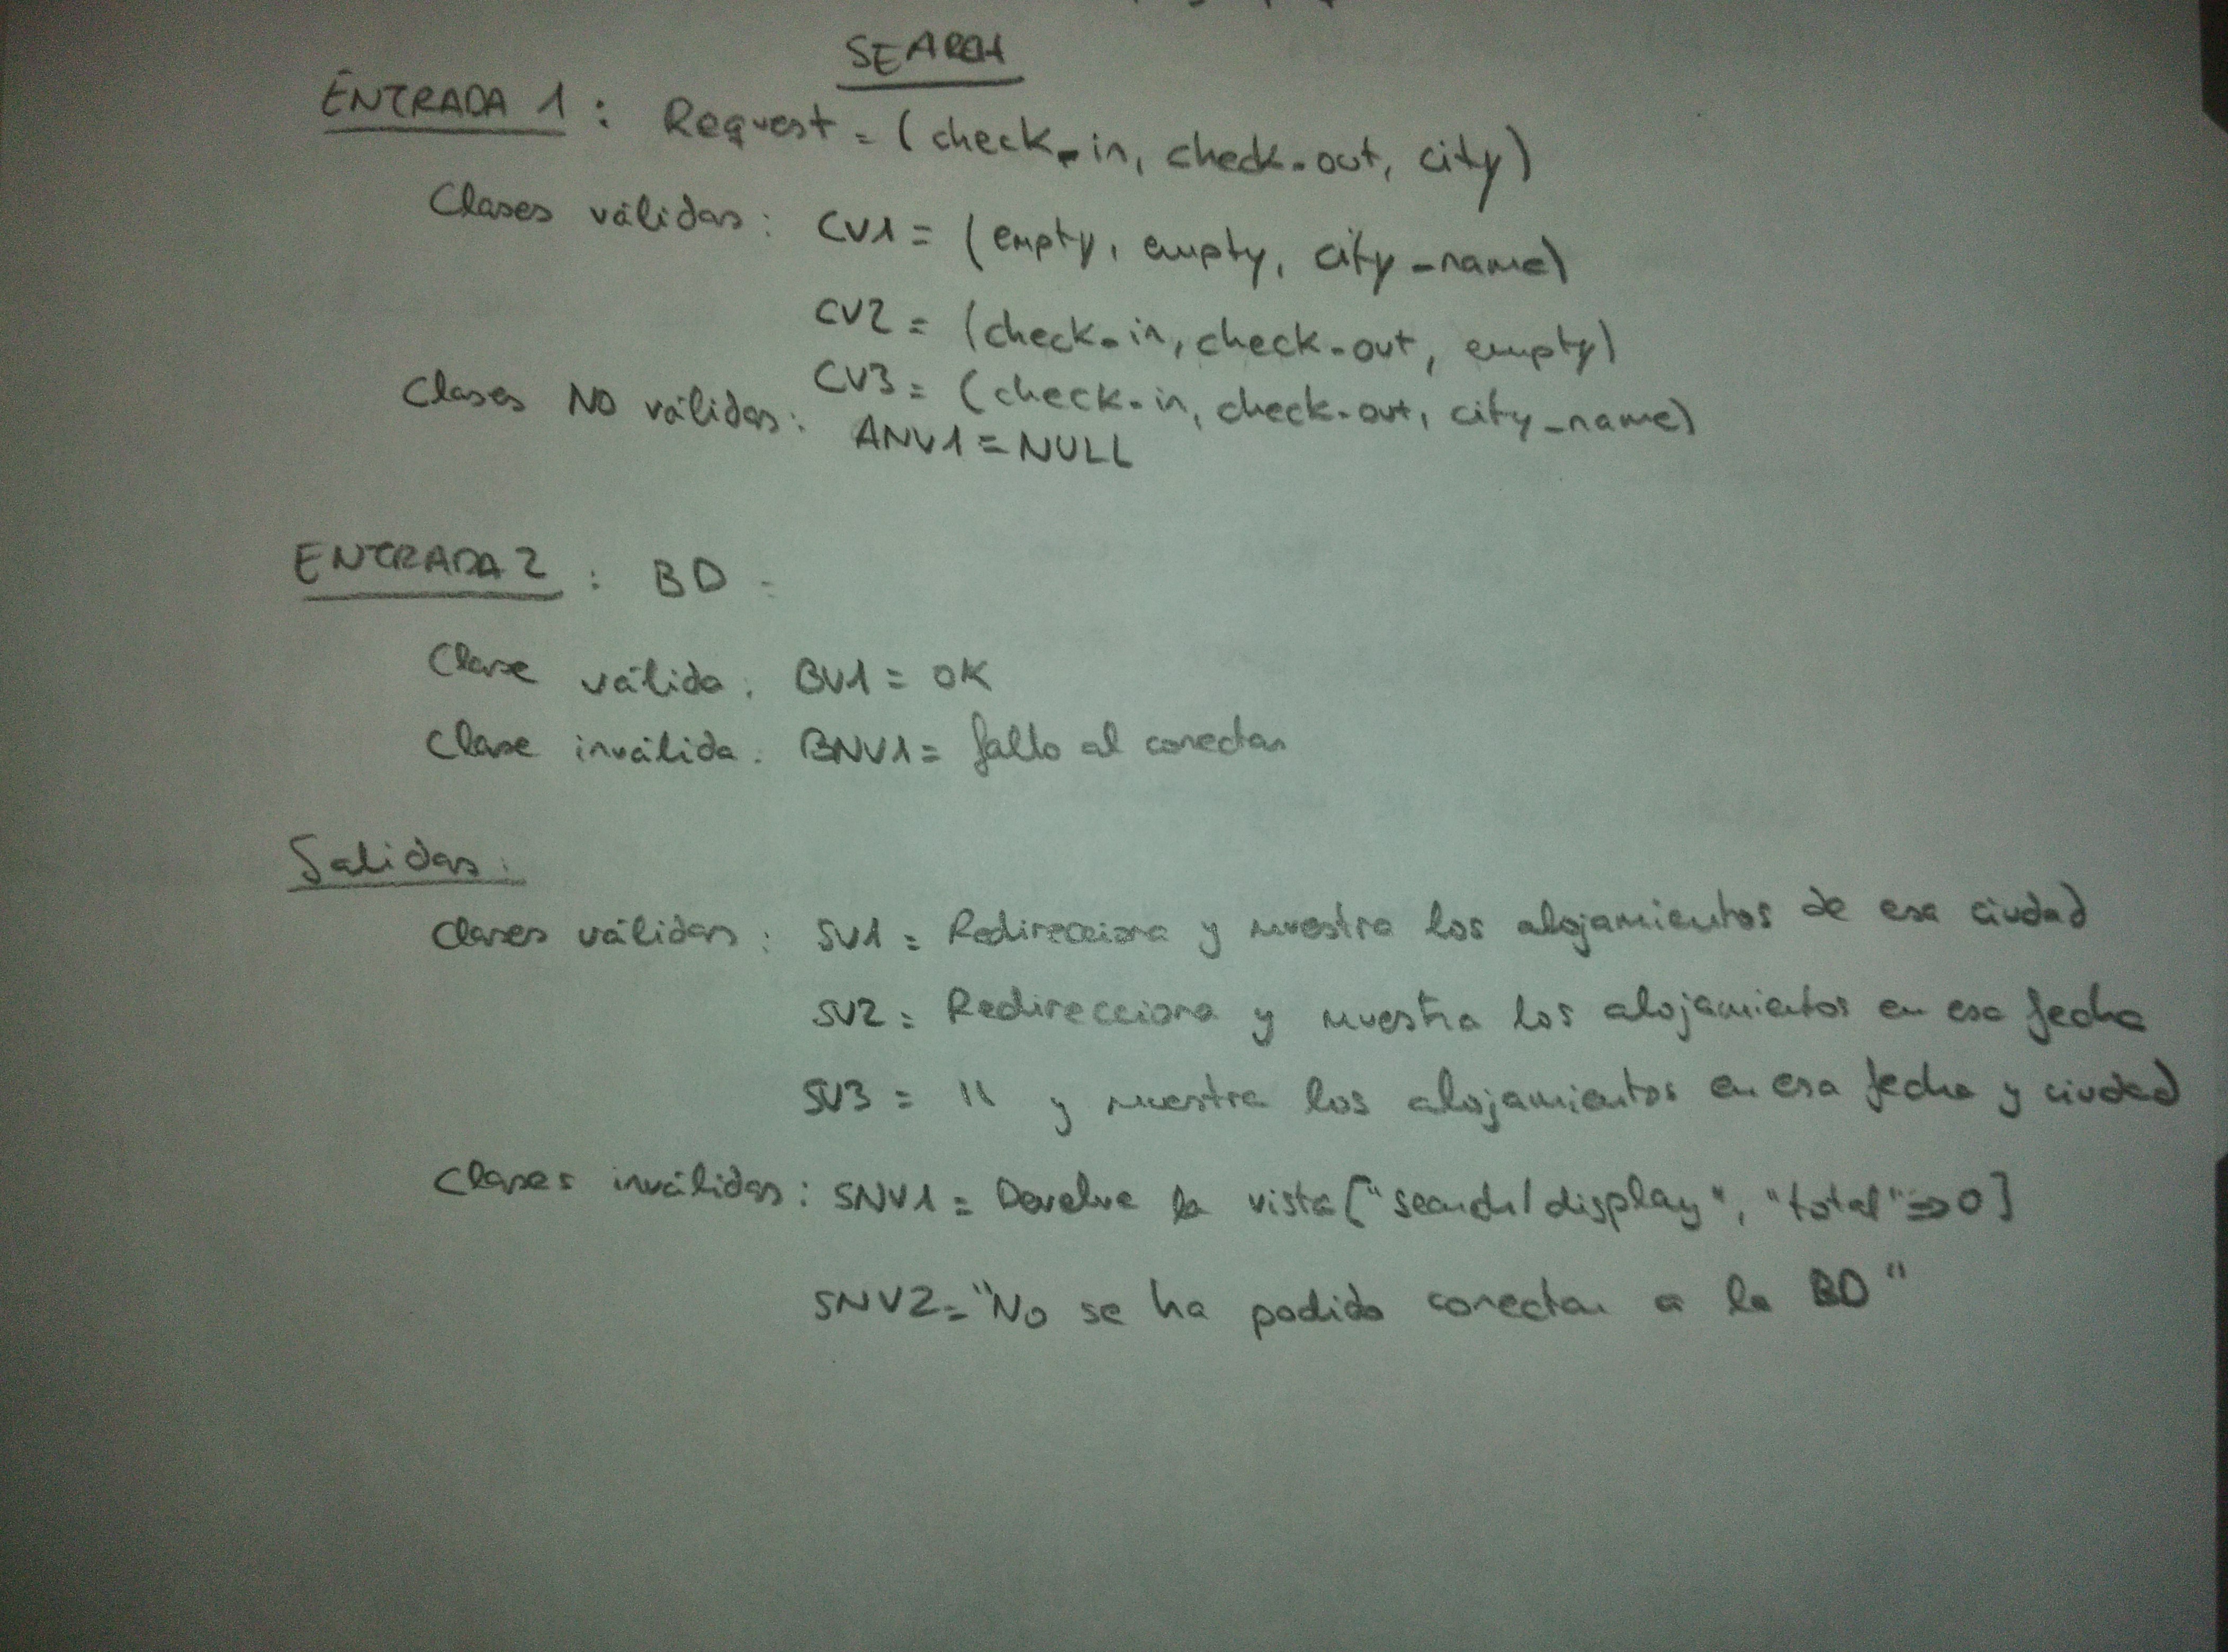 SEARCH
ENTRADA 1 : Request = (check-in, check-out, city)
Clases válidas : CV1 = (empty, empty, city-name)
CV2 = (check-in, check-out, empty)
CV3 = (check-in, check-out, city-name)
Clases NO válidas : ANV1 = NULL
ENTRADA 2 : BD =
Clase válida : BV1 = OK
Clase inválida : BNV1 = fallo al conectar
Salidas :
Clases válidas : SV1 = Redirecciona y muestra los alojamientos de esa ciudad
SV2 = Redirecciona y muestra los alojamientos en esa fecha
SV3 = " y muestra los alojamientos en esa fecha y ciudad
Clases inválidas : SNV1 = Devuelve la vista ["search/display", "total" => 0]
SNV2 = "No se ha podido conectar a la BD"